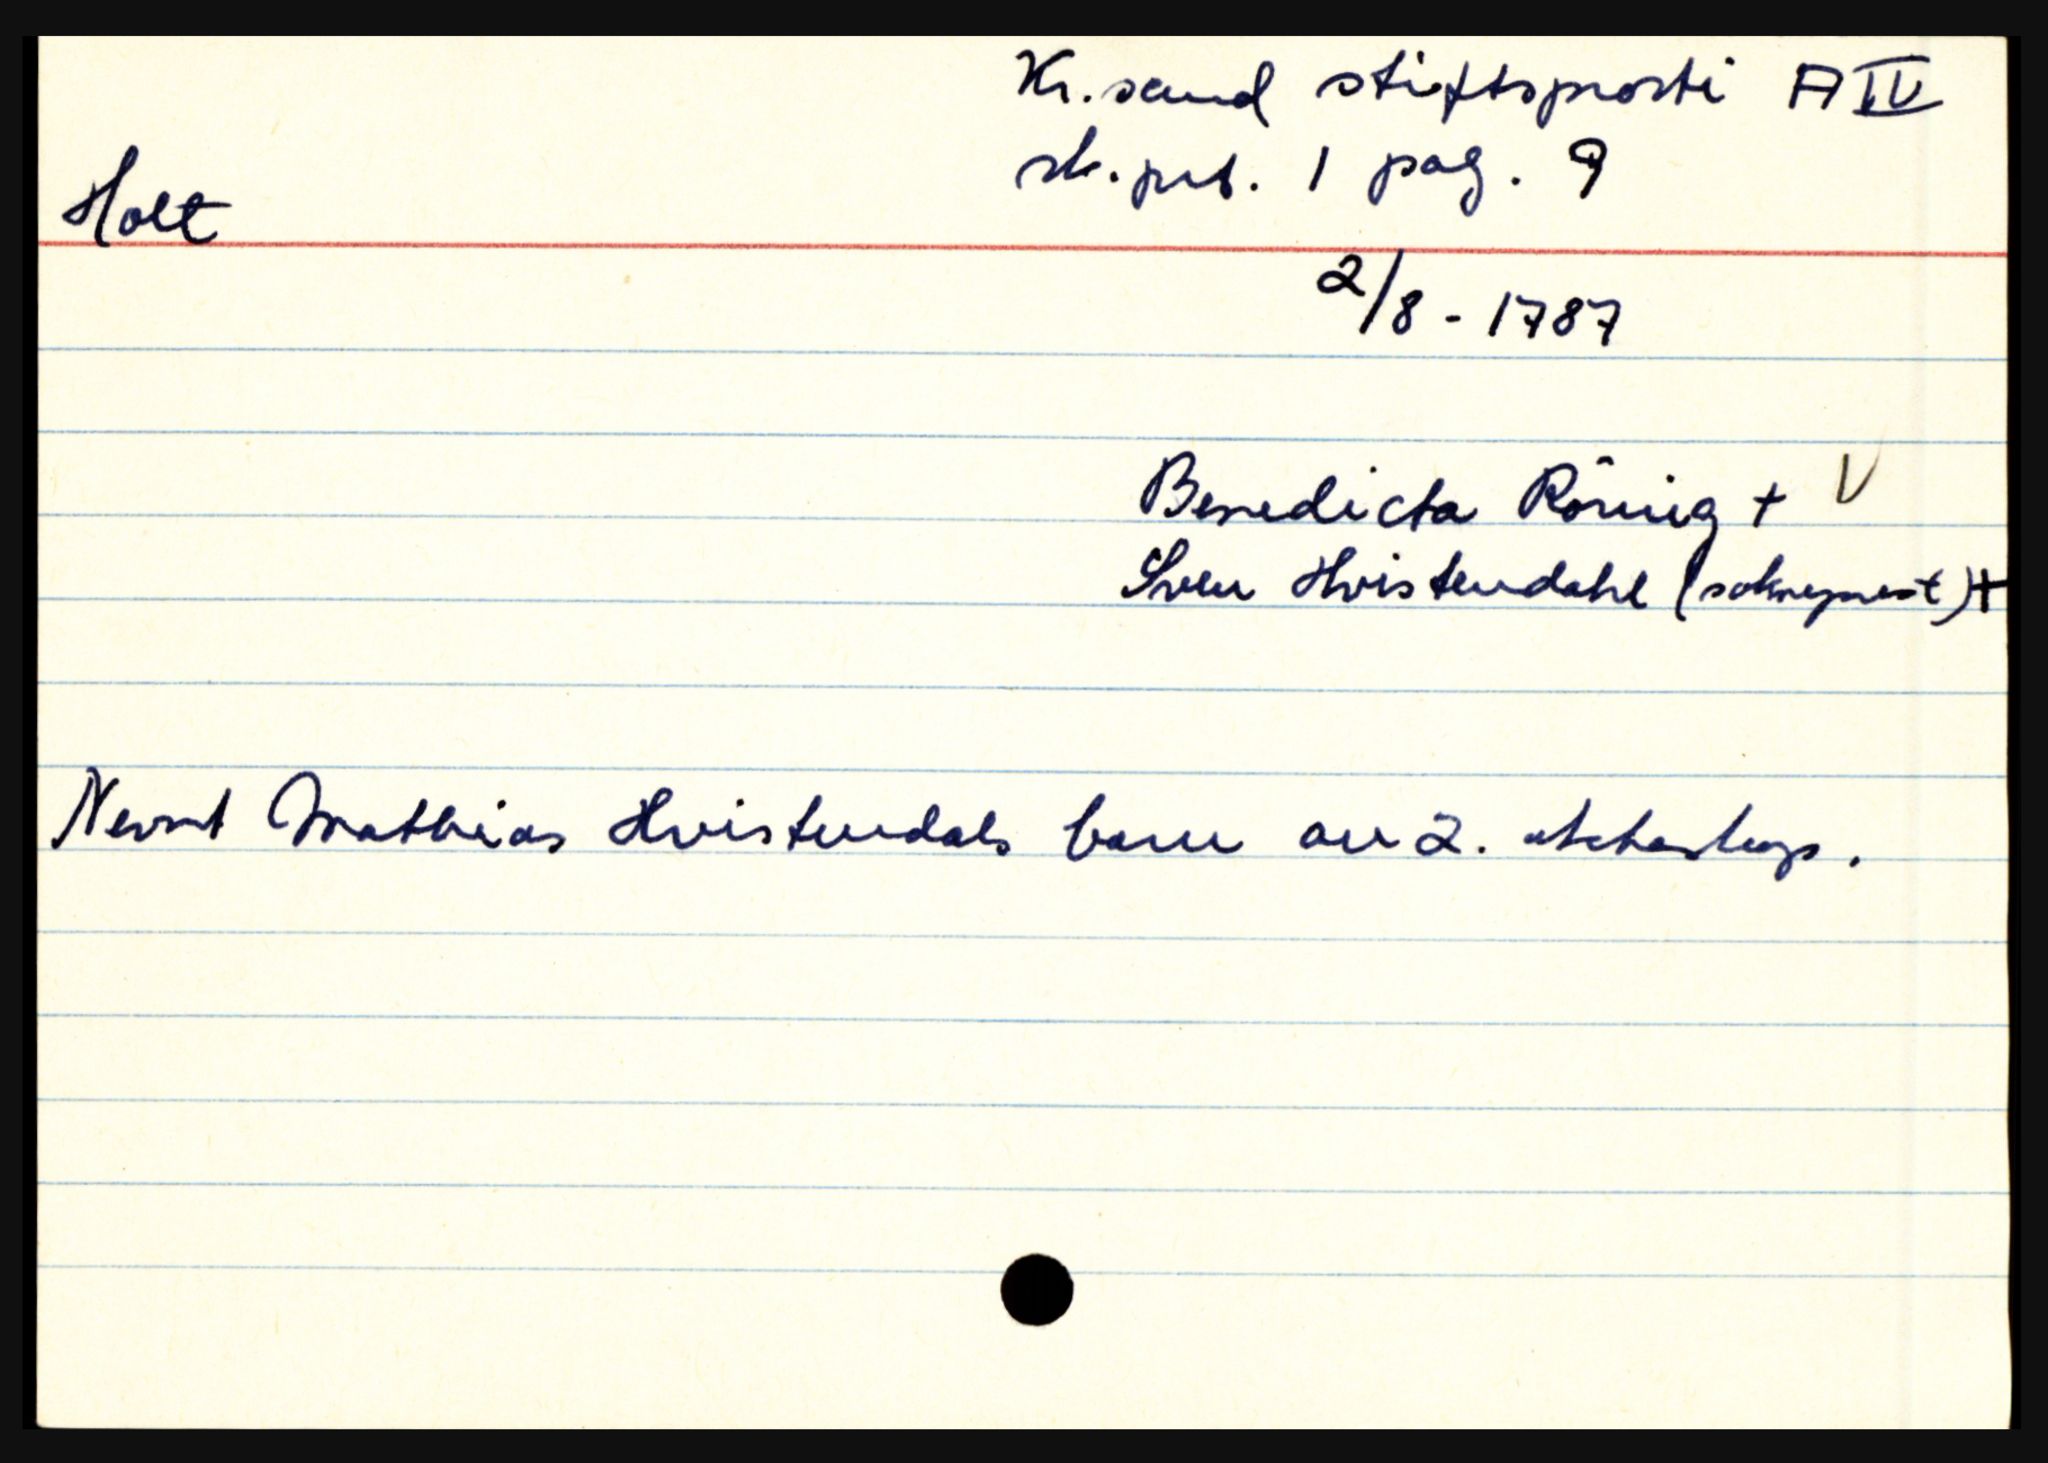 Kr.sand stiftsprosti A IV
sk.prt. 1 pag. 9
Holt
2/8 - 1787
Benedicta Rönnig + V
Sven Hvistendahl (sokneprest) +
Nevnt Mathias Hvistendals barn av 2. ekteskap.